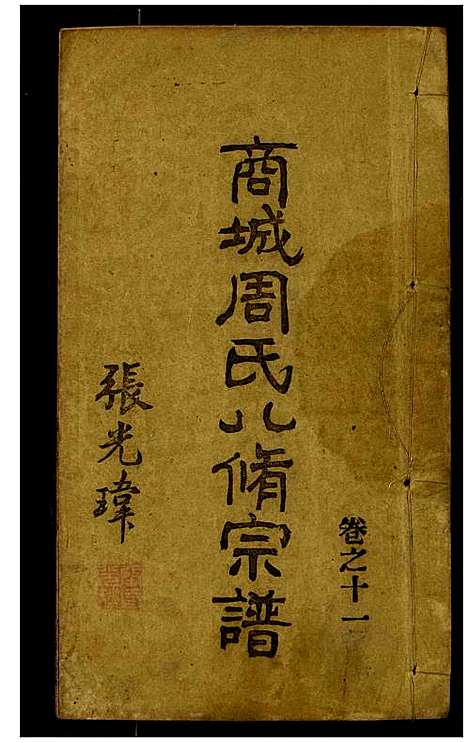 卷之十一
商城周氏八脩宗譜
張光瑋